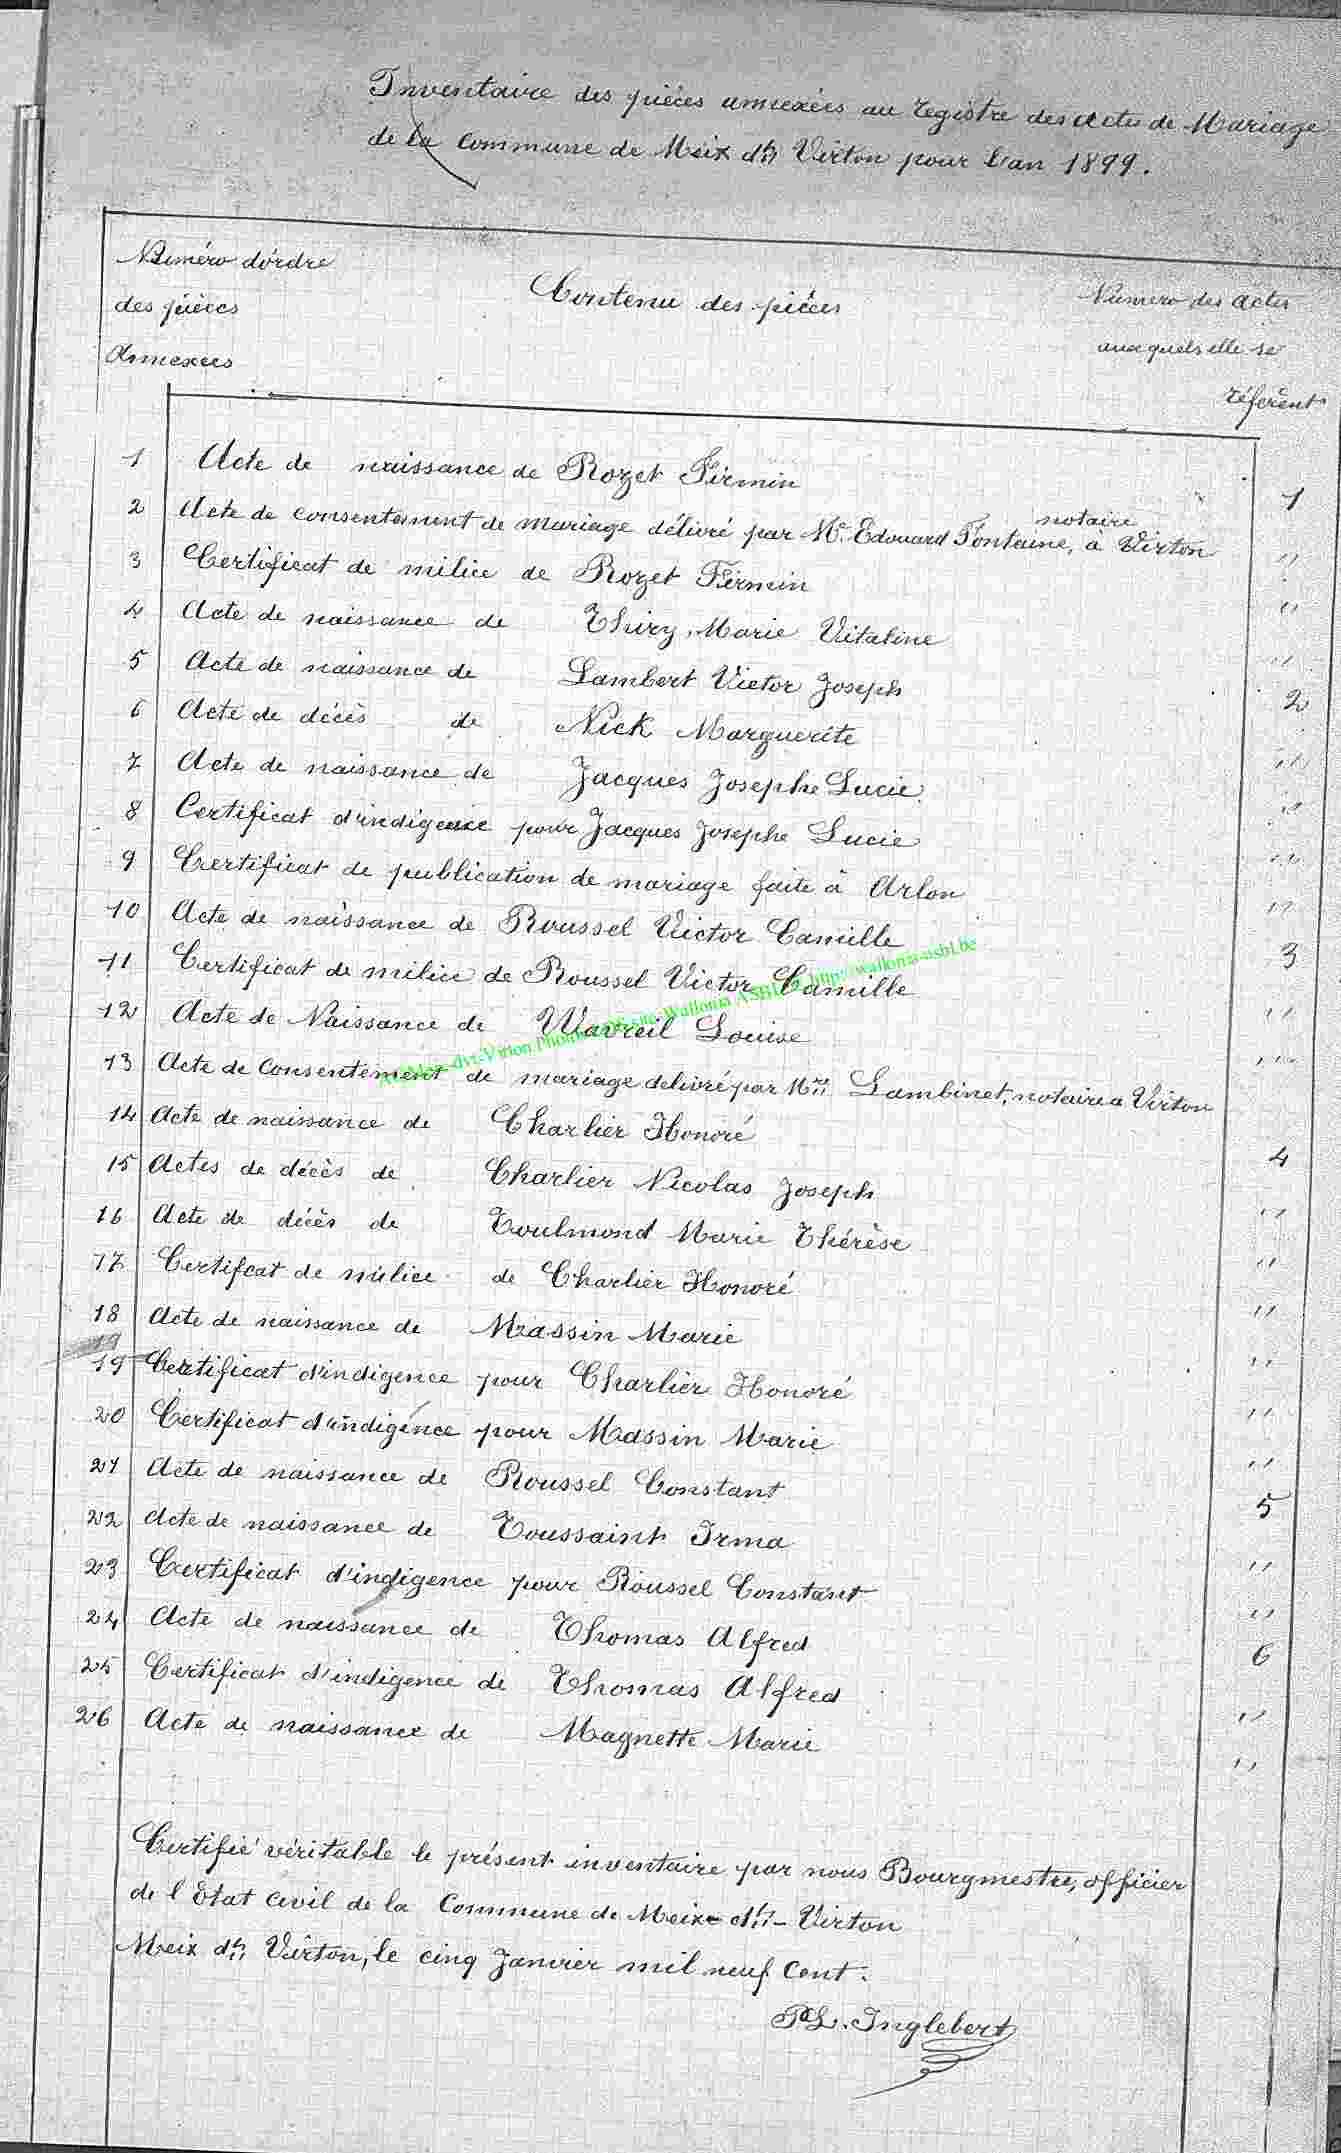 Inventaire des pièces annexées au registre des actes de Mariage
de la Commune de Meix dt Virton pour l'an 1899.
Numéro d'ordre
des pièces
Annexées
Contenu des pièces
Numéro des actes
auxquels elle se
réfèrent
1 Acte de naissance de Rozet Firmin 1
notaire
2 Acte de consentement de mariage délivré par Mr. Edouard Fontaine, à Virton "
3 Certificat de milice de Rozet Firmin "
4 Acte de naissance de Thiry, Marie Vitaline "
5 Acte de naissance de Lambert Victor Joseph 2
6 Acte de décès de Nick Marguerite "
7 Acte de naissance de Jacques Josephe Lucie. "
8 Certificat d'indigence pour Jacques Josephe Lucie "
9 Certificat de publication de mariage faite à Arlon "
10 Acte de naissance de Roussel Victor Camille 3
11 Certificat de milice de Roussel Victor Camille "
12 Acte de Naissance de Wavreil Louise "
13 Acte de Consentement de mariage délivré par Mtre Lambinet, notaire a Virton
14 Acte de naissance de Charlier Honoré 4
15 Actes de décès de Charlier Nicolas Joseph "
16 Acte de décès de Toulmond Marie Thérèse "
17 Certifcat de milice de Charlier Honoré "
18 Acte de naissance de Massin Marie "
19
19 Certificat d'indigence pour Charlier Honoré "
20 Certificat d'indigence pour Massin Marie "
21 Acte de naissance de Roussel Constant 5
22 Acte de naissance de Toussaint Irma "
23 Certificat d'indigence pour Roussel Constant "
24 Acte de naissance de Thomas Alfred 6
25 Certificat d'indigence de Thomas Alfred "
26 Acte de naissance de Magnette Marie "
Certifié véritable le présent inventaire par nous Bourgmestre, officier
de l'Etat civil de la Commune de Meix dt - Virton
Meix dt Virton, le cinq Janvier mil neuf cent.
PL. Inglebert
Wallonia ASBL http://wallonia-asbl.be